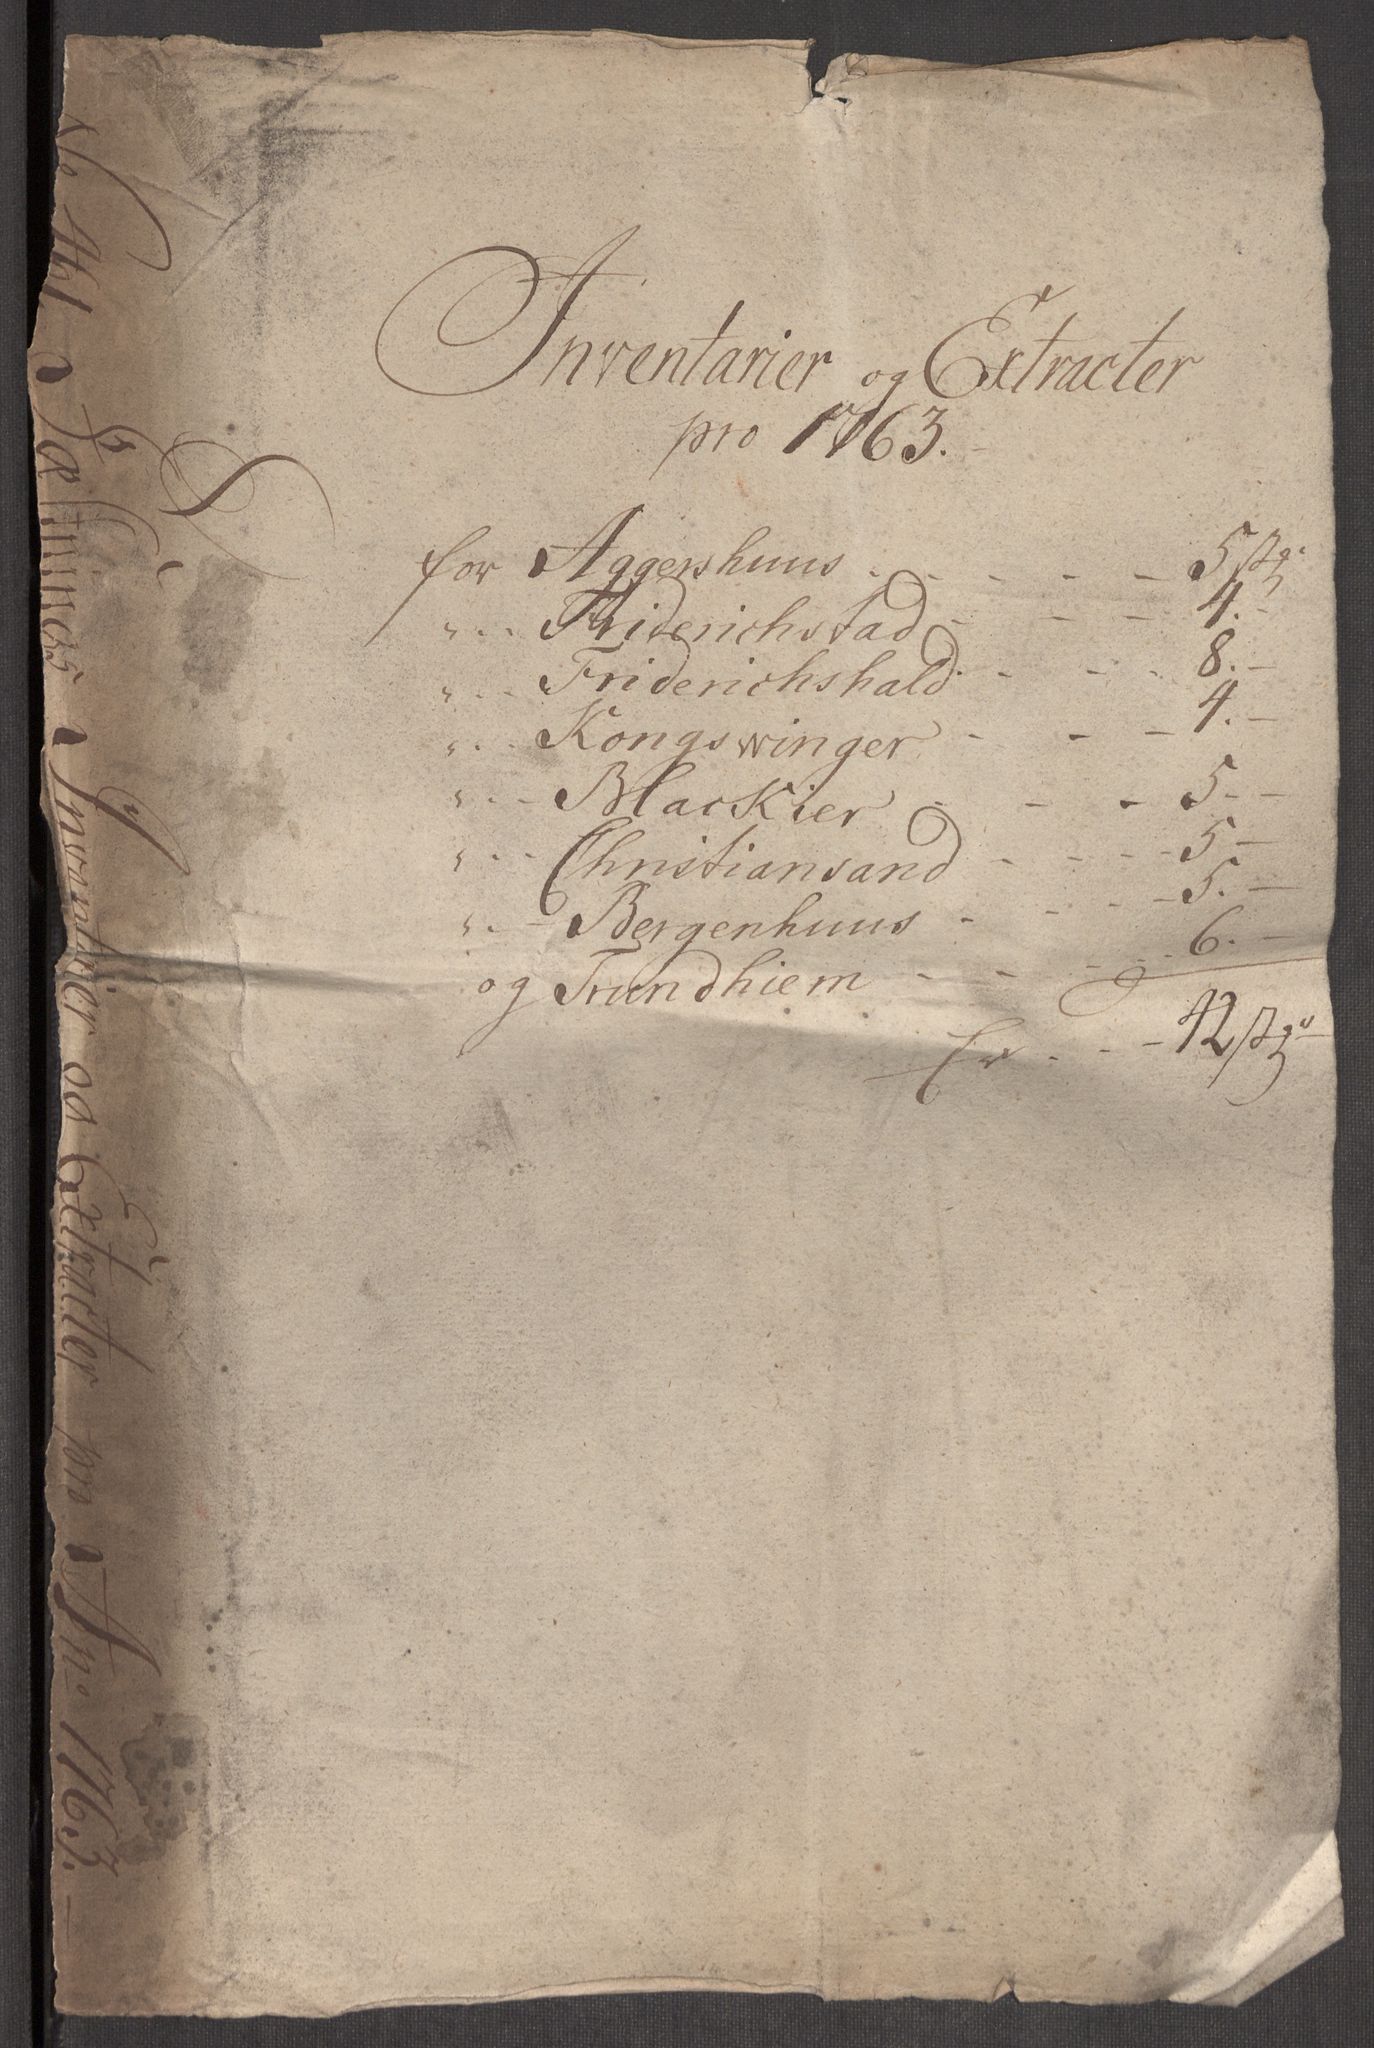 Inventarier og Extracter
pro 1763.
for Aggershuus - - - - - 5 st̃z.
" - - Friderichstad - - - - 4. -
" - - Friderichshald - - - - 8. -
" - - Kongswinger - - - 4. -
" - - Blackier - - - 5. - -
" - - Christiansand - - - - 5 -
" - - Bergenhuus - - - - 5. -
og Trundhiem - - - - 6. -
Er - - - 42
No
Inventier og Extracter pro An: 1763. -